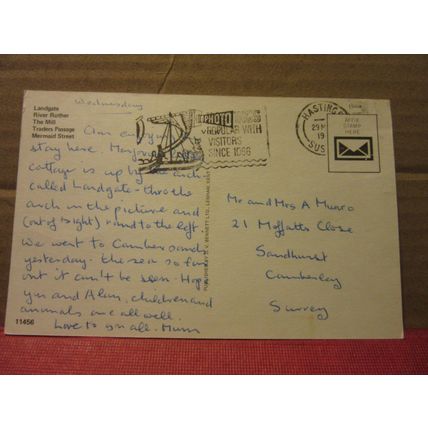 Landgate
River Rother
The Mill
Traders Passage
Mermaid Street
Wednesday
Am enjoying
stay here.
cottage is up by the arch
called Landgate - thro the
arch in the picture and
(out of sight) round to the left.
We went to Camber sands
yesterday. the sea so far
out it can't be seen. Hope
you and Alan, children and
animals are all well.
Love to you all. Mum
11456
POPULAR WITH
VISITORS
SINCE 1066
HASTINGS
29
19
SUS
AFFIX
STAMP
HERE
PUBLISHED BY D. V. BENNETT LTD.,
Mr and Mrs A Munro
21 Moffatts Close
Sandhurst
Camberley
Surrey